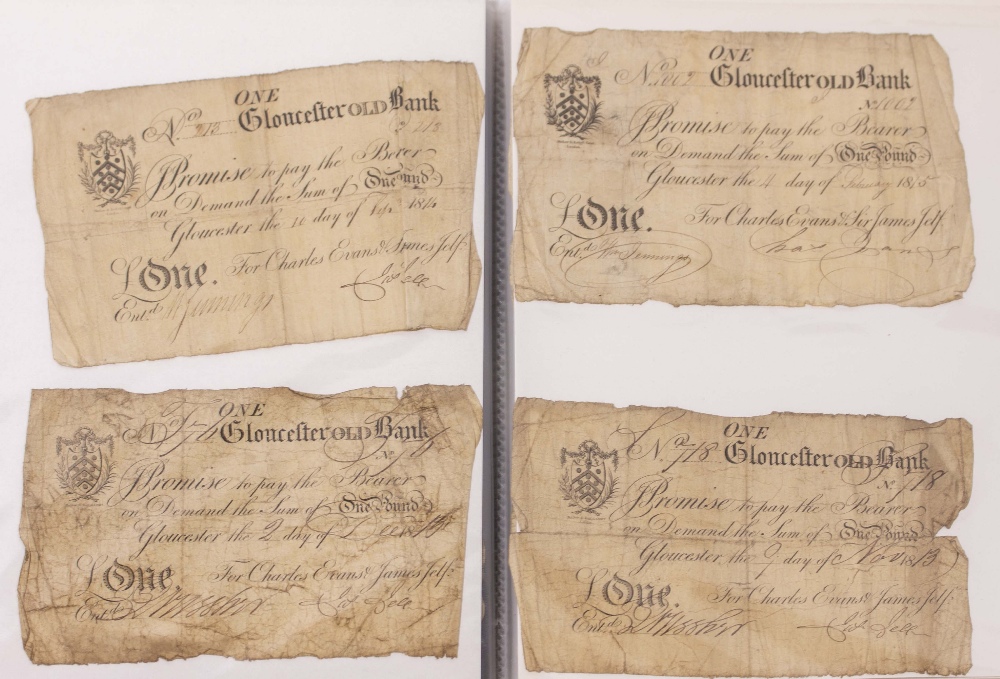 ONE
No 213 Gloucester OLD Bank
213
Promise to pay the Berer
on Demand the Sum of One Pound
Gloucester the 10 day of 181
£ One. For Charles Evans & James Jelf
Entd. Jennings Jas Jelf
ONE
No 1002 Gloucester OLD Bank
No 1002
Promise to pay the Bearer
on Demand the Sum of One Pound
Gloucester the 4 day of February 1815
£ One. For Charles Evans & Sir James Jelf.
Entd. Wm Jennings Chas Evans
ONE
No Gloucester OLD Bank
No
Promise to pay the Bearer
on Demand the Sum of One Pound
Gloucester the 2 day of
£ One. For Charles Evans & James Jelf.
Entd. Jas Jelf
ONE
No 718 Gloucester OLD Bank
No 718
Promise to pay the Bearer
on Demand the Sum of One Pound
Gloucester the 9 day of Nov 1813
£ One. For Charles Evans & James Jelf.
Entd. Jas Jelf